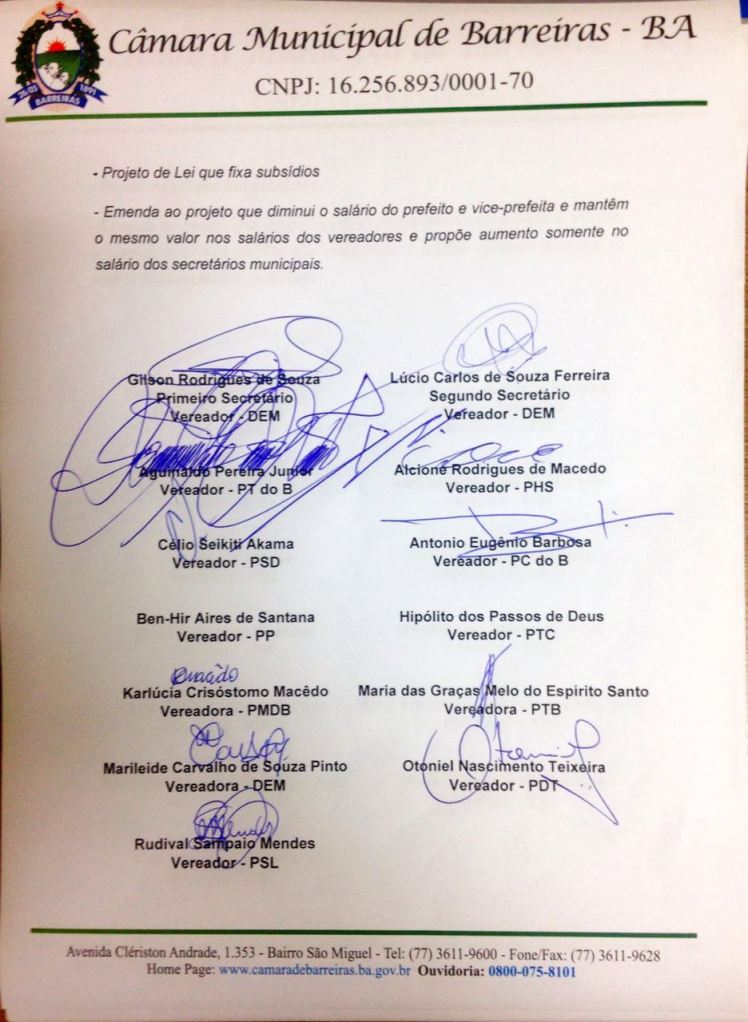 Câmara Municipal de Barreiras - BA
CNPJ: 16.256.893/0001-70
26/05 1891
BARREIRAS
- Projeto de Lei que fixa subsídios
- Emenda ao projeto que diminui o salário do prefeito e vice-prefeita e mantêm
o mesmo valor nos salários dos vereadores e propõe aumento somente no
salário dos secretários municipais.
Gilson Rodrigues de Souza
Primeiro Secretário
Vereador - DEM
Lúcio Carlos de Souza Ferreira
Segundo Secretário
Vereador - DEM
Aguinaldo Pereira Junior
Vereador - PT do B
Alcione Rodrigues de Macedo
Vereador - PHS
Célio Seikiti Akama
Vereador - PSD
Antonio Eugênio Barbosa
Vereador - PC do B
Ben-Hir Aires de Santana
Vereador - PP
Hipólito dos Passos de Deus
Vereador - PTC
Karlúcia Crisóstomo Macêdo
Vereadora - PMDB
Maria das Graças Melo do Espirito Santo
Vereadora - PTB
Marileide Carvalho de Souza Pinto
Vereadora - DEM
Otoniel Nascimento Teixeira
Vereador - PDT
Rudival Sampaio Mendes
Vereador - PSL
Avenida Clériston Andrade, 1.353 - Bairro São Miguel - Tel: (77) 3611-9600 - Fone/Fax: (77) 3611-9628
Home Page: www.camaradebarreiras.ba.gov.br Ouvidoria: 0800-075-8101